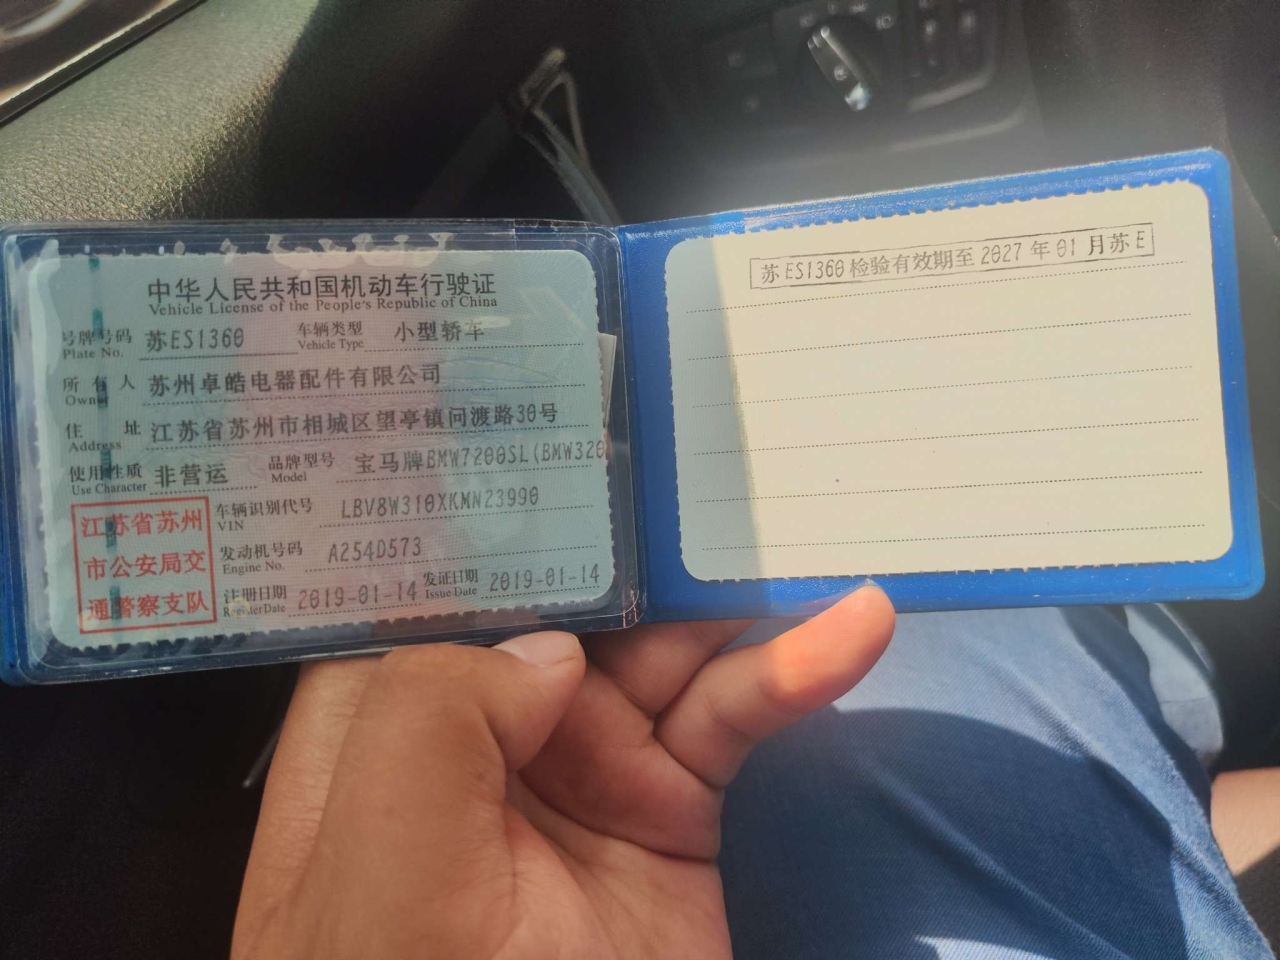 中华人民共和国机动车行驶证
Vehicle License of the People's Republic of China
号牌号码 苏ES1360 车辆类型 小型轿车
Plate No. Vehicle Type
所有人 苏州卓皓电器配件有限公司
Owner
住址 江苏省苏州市相城区望亭镇问渡路30号
Address
使用性质 非营运 品牌型号 宝马牌BMW7200SL(BMW320
Use Character Model
江苏省苏州
市公安局交
通警察支队
车辆识别代号 LBV8W310XKMN23990
VIN
发动机号码 A254D573
Engine No.
注册日期 2019-01-14 发证日期 2019-01-14
Register Date Issue Date
苏ES1360检验有效期至2027年01月苏E